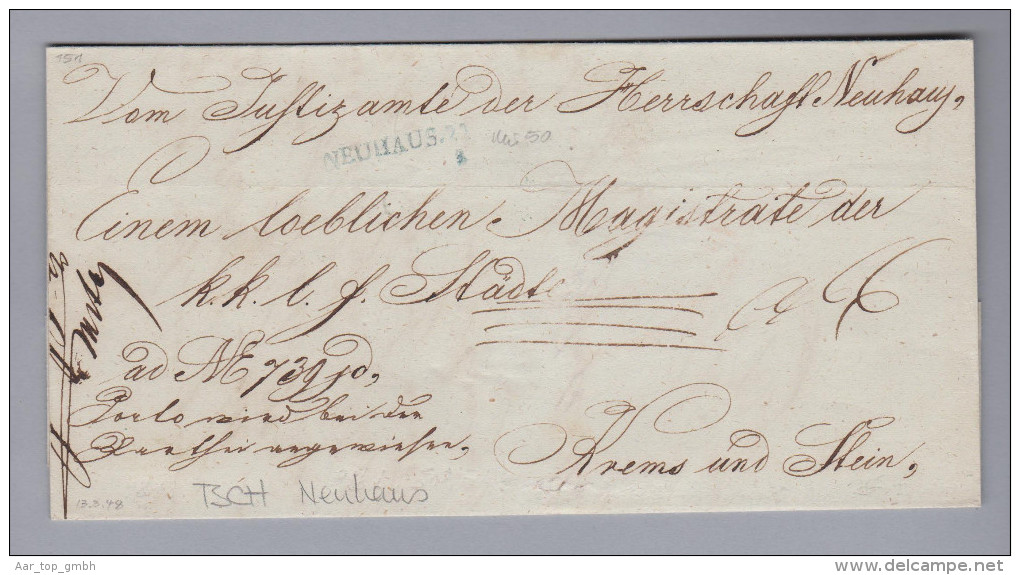 Vom Justizamte der Herrschaft Neuhaus,
NEUHAUS. 22
Einem loeblichen Magistrate der
k. k. l. f. Städte
ad N 739 jd,
Porto wird bei der
Parthei angewiesen.
Krems und Stein,
TSCH Neuhaus
13.3.48
Aar_top_gmbh
www.delcampe.net